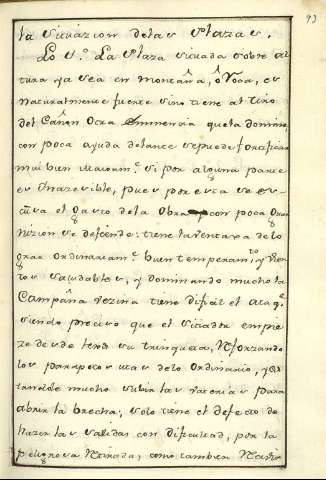 93
la situazion delas Plazas.
Lo 1.º La Plaza situada sobre al
tura ya sea en montaña, ô Roca, es
naturalmente fuerte sino tiene al tiro
del Cañon otra Eminencia que la domine,
con poca ayuda de lante sepuede fortificar
mui bien maiorm.te si por alguna parte
es Inazesible, pues por esta se es-
cusa el gasto dela Obra con poca gua
nizion se defiende: tiene la ventaxa de lo
grar Ordinariam.te buen temperam.to, y vien
tos saludables, y dominando mucho la
Campaña vezina tiene dificil el ataq.e
siendo preciso que el sitiador empie
ze desde lexos su trinchera, Reforzando
los parapetos mas delo Ordinario, y
mucho subir las vaterias para
abrir la brecha; solo tiene el defecto de
hazer las salidas con dificultad, por la
peligrosa Retirada, como tambien